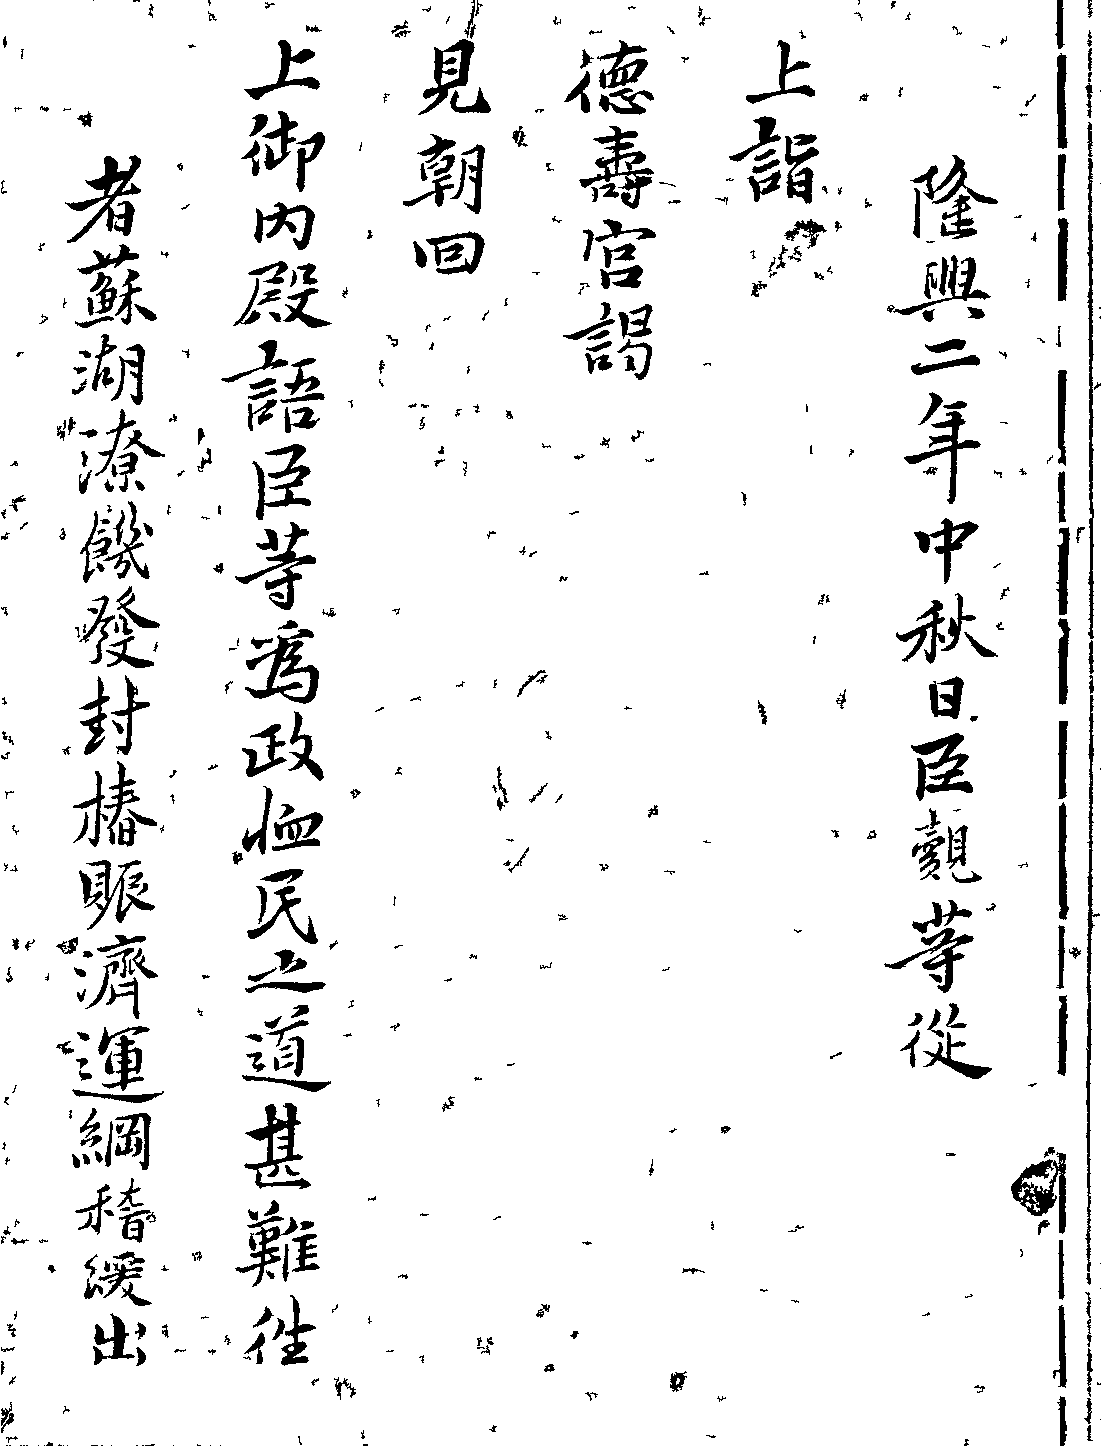 隆興二年中秋日臣覿等從
上詣
德壽宮謁
見朝回
上御內殿語臣等爲政恤民之道甚難徃
者蘇湖潦饑發封樁賑濟運綱稽緩出